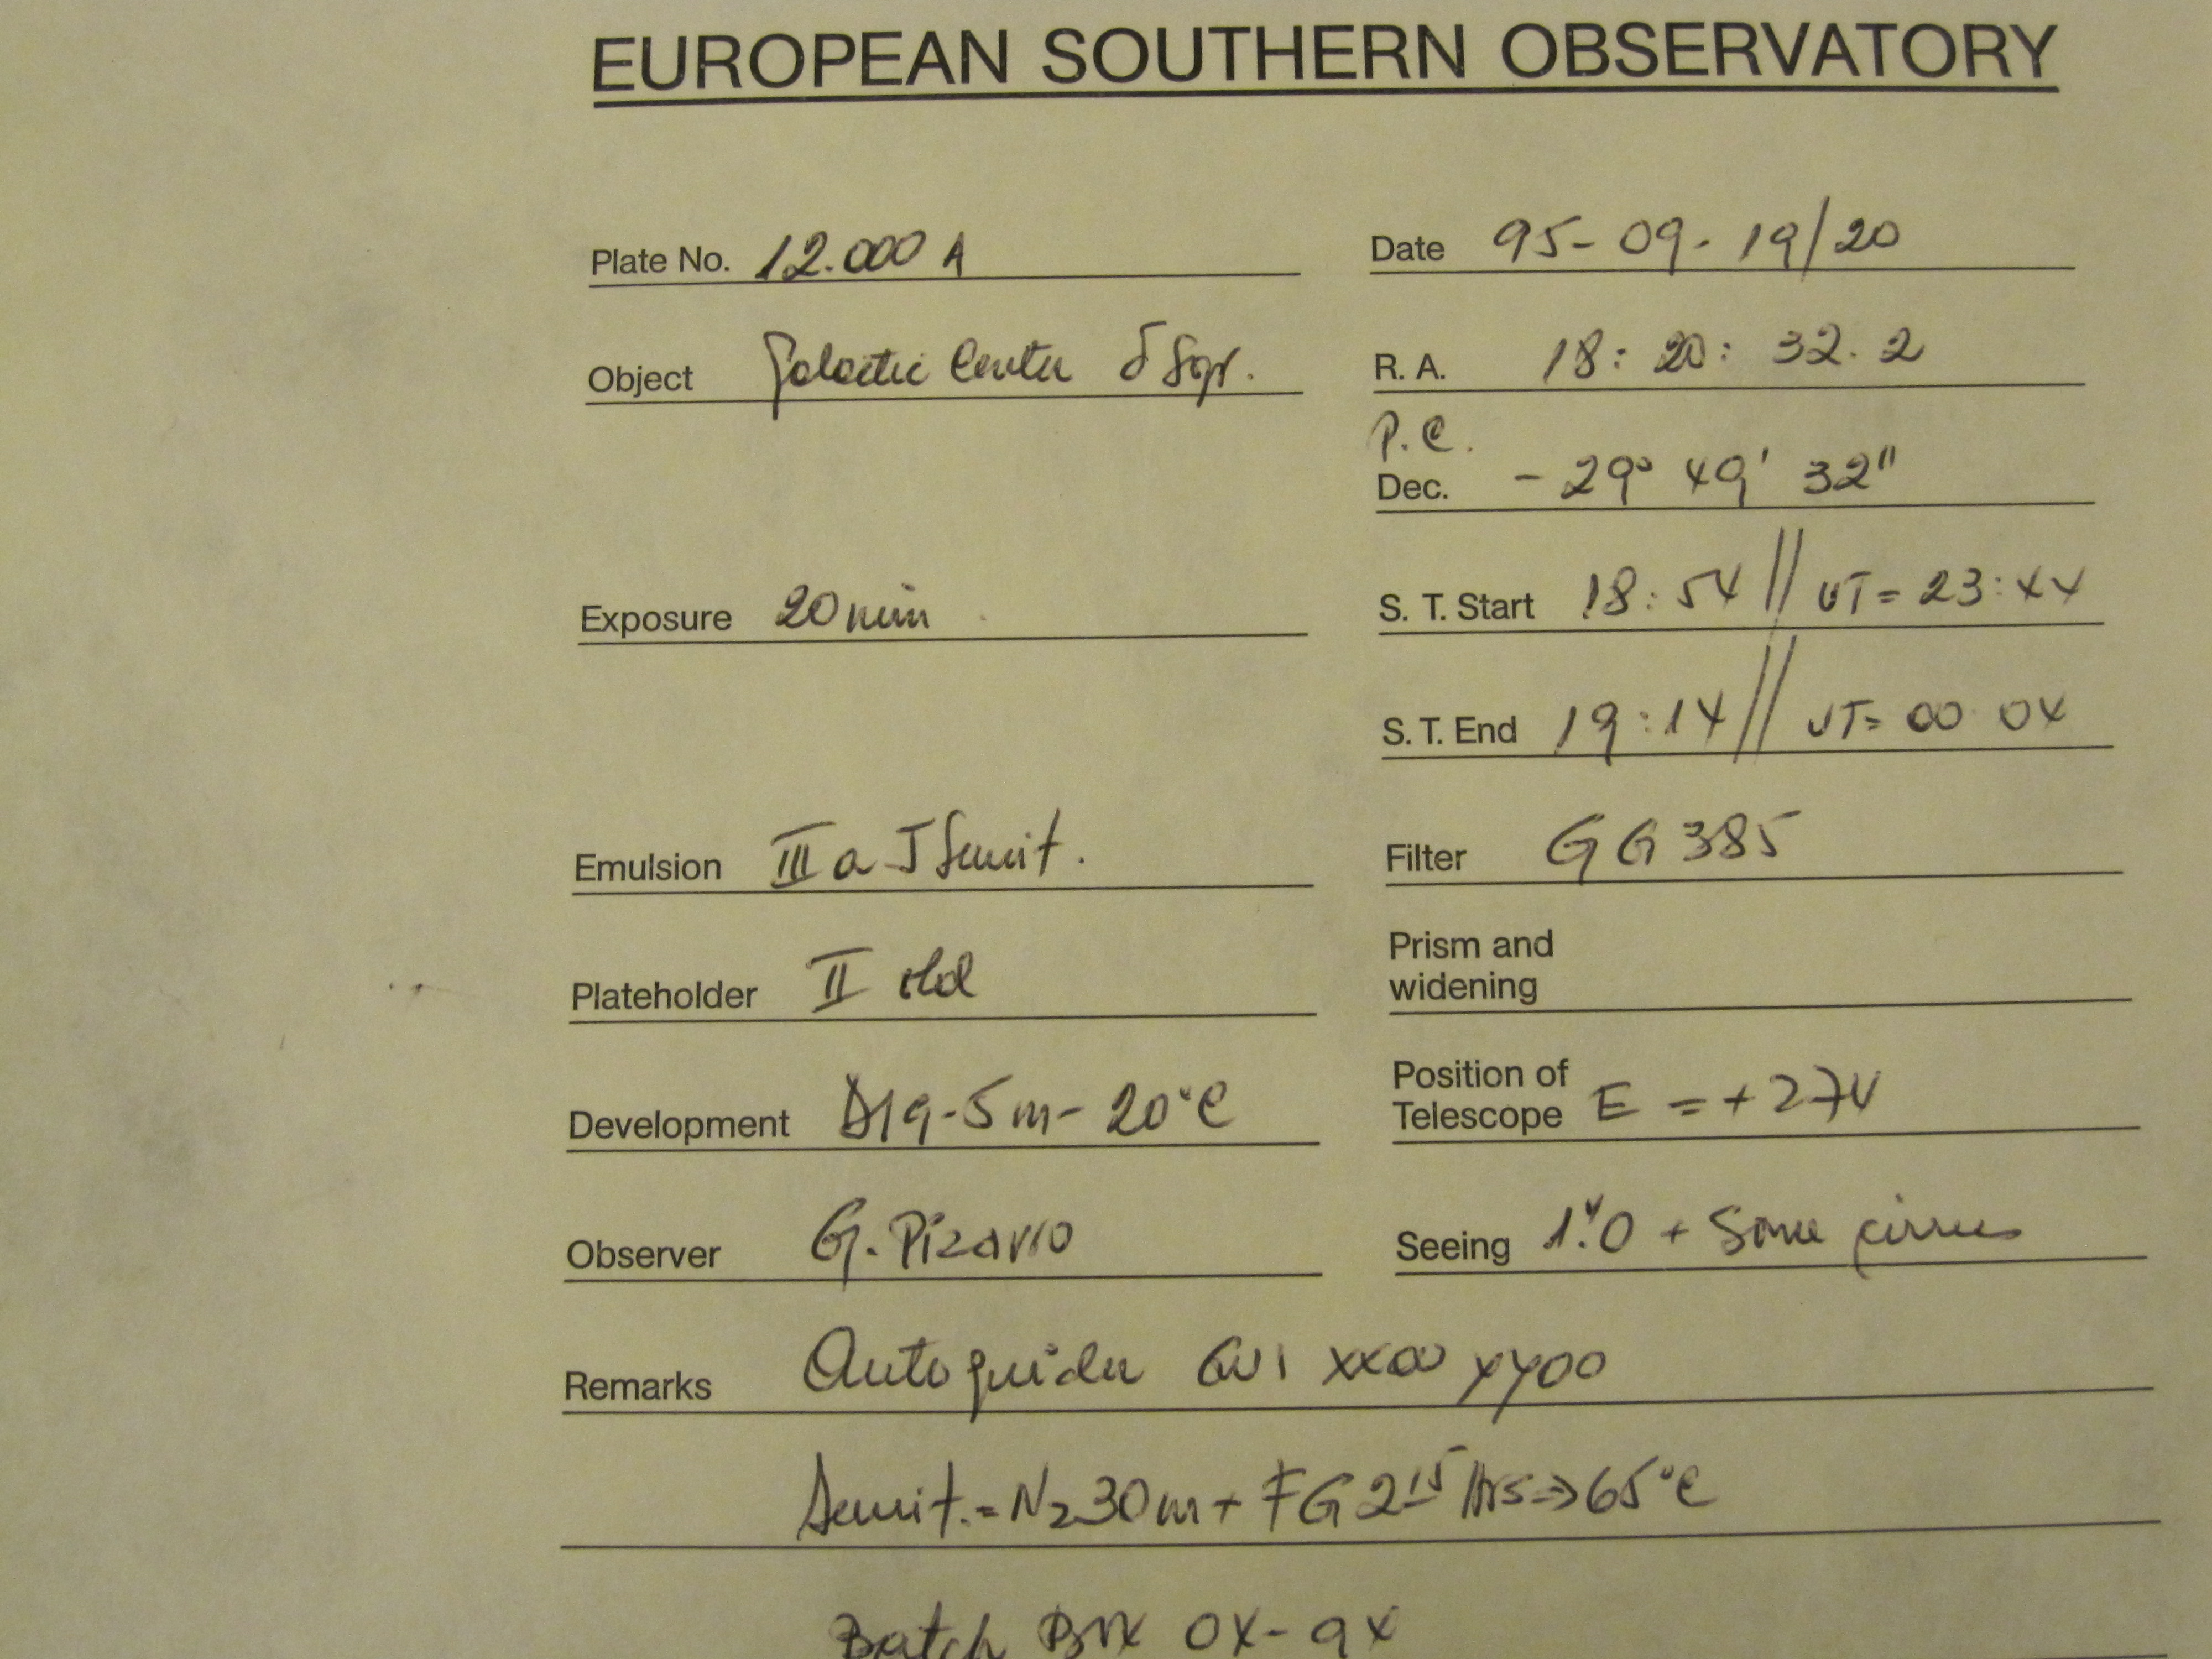 EUROPEAN SOUTHERN OBSERVATORY
Plate No. 12.000 A
Date 95-09-19/20
Object Galactic Center δ Sgr.
R. A. 18: 20: 32.2
P.C.
Dec. - 29° 49' 32"
Exposure 20 min
S. T. Start 18:54 // UT = 23:44
S. T. End 19:14 // UT= 00 04
Emulsion III a J Sensit.
Filter GG 385
Plateholder II old
Prism and
widening
Development D19-5m-20°C
Position of
Telescope E = +274
Observer G. Pizarro
Seeing 1".0 + Some cirrus
Remarks Autoguider XX00 YY00
Sensit. = N2 30m + FG 2 15 Hrs => 65°C
Batch Box 04-94